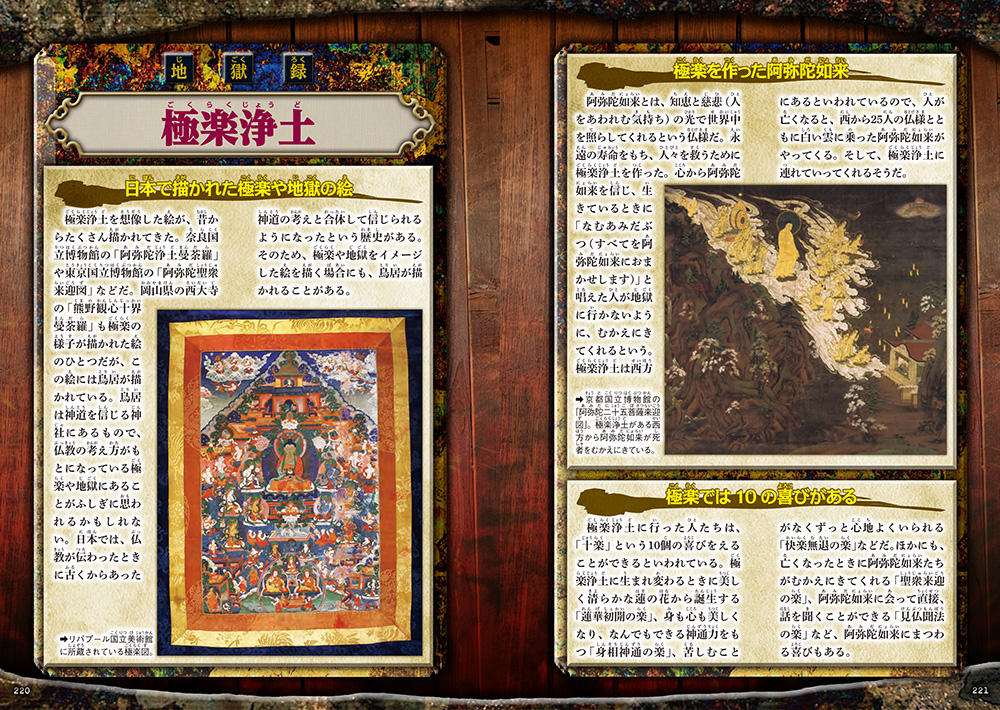 地獄録
極楽浄土
日本で描かれた極楽や地獄の絵
極楽浄土を想像した絵が、昔か
らたくさん描かれてきた。奈良国
立博物館の「阿弥陀浄土曼荼羅」
や東京国立博物館の「阿弥陀聖衆
来迎図」などだ。岡山県の西大寺
の「熊野観心十界
曼荼羅」も極楽の
様子が描かれた絵
のひとつだが、こ
の絵には鳥居が描
かれている。鳥居
は神道を信じる神
社にあるもので、
仏教の考え方がも
とになっている極
楽や地獄にあるこ
とがふしぎに思わ
れるかもしれな
い。日本では、仏
教が伝わったとき
に古くからあった
神道の考えと合体して信じられる
ようになったという歴史がある。
そのため、極楽や地獄をイメージ
した絵を描く場合にも、鳥居が描
かれることがある。
➡リバプール国立美術館
に所蔵されている極楽図。
220
極楽を作った阿弥陀如来
阿弥陀如来とは、知恵と慈悲（人
をあわれむ気持ち）の光で世界中
を照らしてくれるという仏様だ。永
遠の寿命をもち、人々を救うために
極楽浄土を作った。心から阿弥陀
如来を信じ、生
きているときに
「なむあみだぶ
つ（すべてを阿
弥陀如来におま
かせします）」と
唱えた人が地獄
に行かないよう
に、むかえにき
てくれるという。
極楽浄土は西方
にあるといわれているので、人が
亡くなると、西から25人の仏様とと
もに白い雲に乗った阿弥陀如来が
やってくる。そして、極楽浄土に
連れていってくれるそうだ。
➡京都国立博物館の
「阿弥陀二十五菩薩来迎
図」。極楽浄土がある西
方から阿弥陀如来が死
者をむかえにきている。
極楽では10の喜びがある
極楽浄土に行った人たちは、
「十楽」という10個の喜びをえる
ことができるといわれている。極
楽浄土に生まれ変わるときに美し
く清らかな蓮の花から誕生する
「蓮華初開の楽」、身も心も美しく
なり、なんでもできる神通力をも
つ「身相神通の楽」、苦しむこと
がなくずっと心地よくいられる
「快楽無退の楽」などだ。ほかにも、
亡くなったときに阿弥陀如来たち
がむかえにきてくれる「聖衆来迎
の楽」、阿弥陀如来に会って直接、
話を聞くことができる「見仏聞法
の楽」など、阿弥陀如来にまつわ
る喜びもある。
221